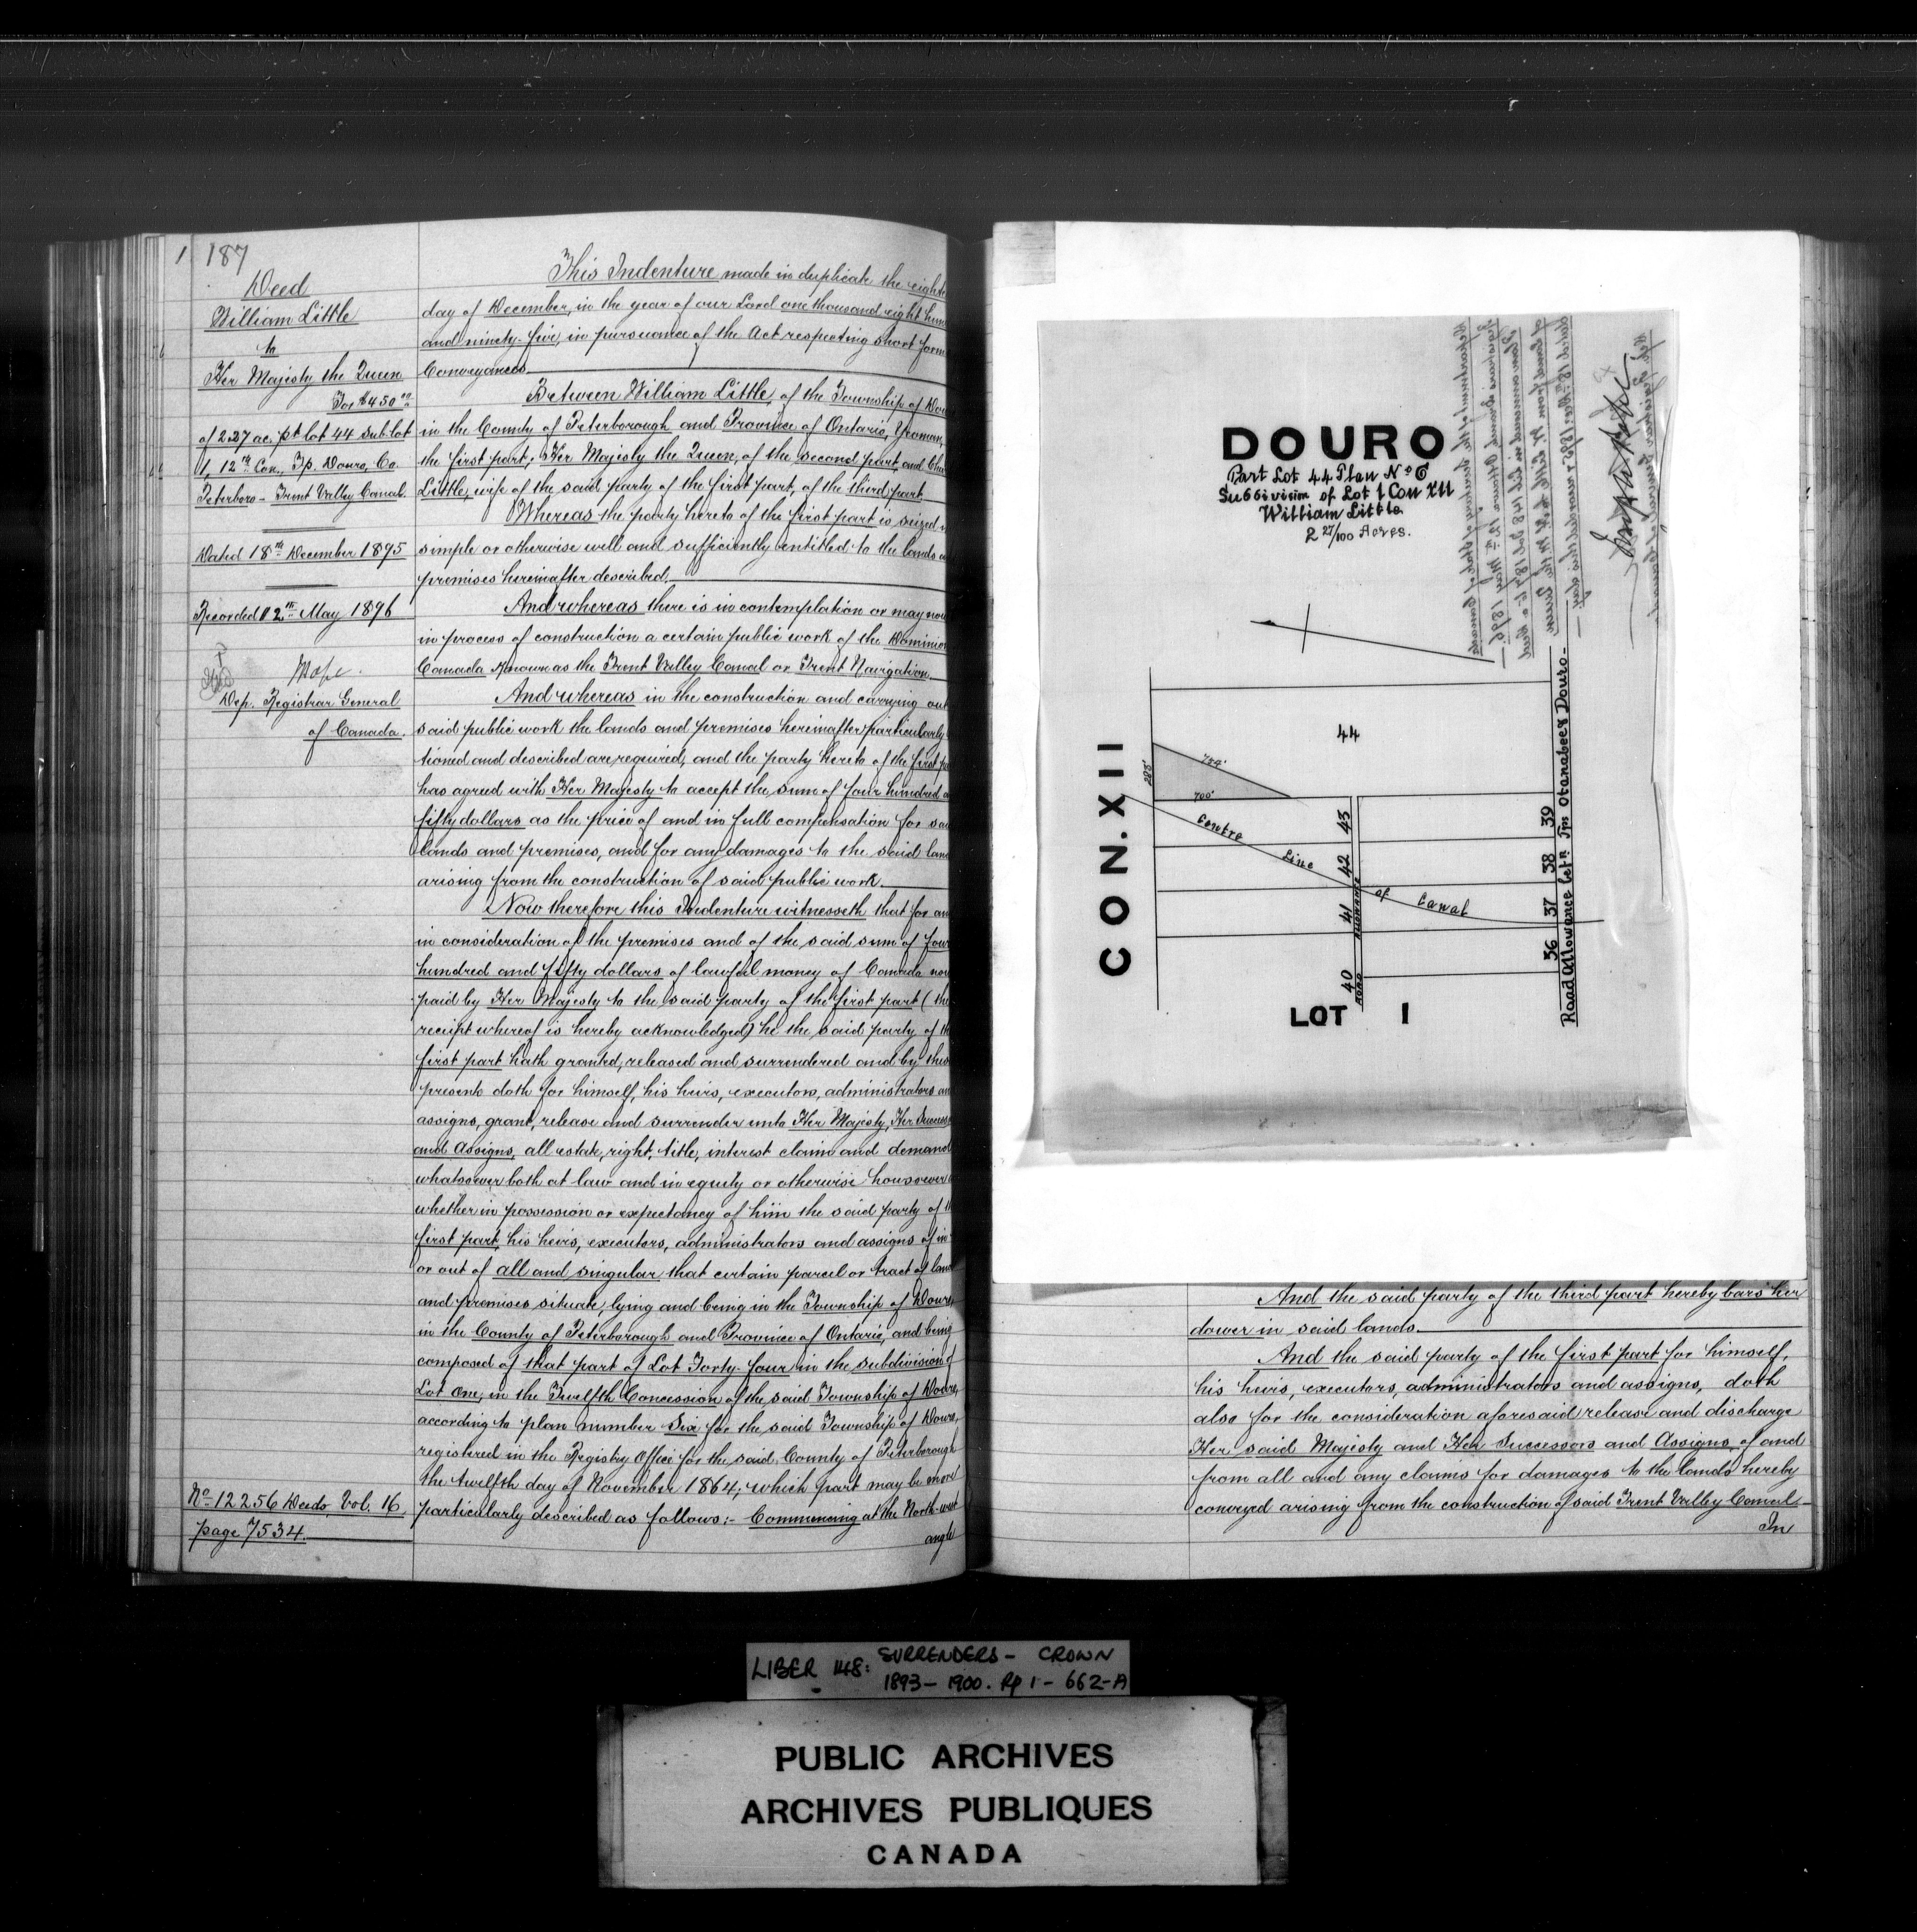 187
Deed
William Little
to
Her Majesty the Queen
For $450.00
of 2.27 ac. pt lot 44 sub lot
1, 12th Con., Tp. Douro, Co.
Peterboro - Trent Valley Canal.
Dated 18th December 1895
Recorded 12th May 1896
Dep. Registrar General
of Canada.
No 12256 Deeds, Vol. 16.
page 7534.
This Indenture made in duplicate the
day of December, in the year of our Lord one thousand eight
and ninety-five, in pursuance of the Act respecting short
Conveyances.
Between William Little, of the Township of
in the County of Peterborough and Province of Ontario, Yeoman,
the first part; Her Majesty the Queen, of the second part, and
Little, wife of the said party of the first part, of the third part.
Whereas the party hereto of the first part is seized
simple or otherwise well and sufficiently entitled to the lands
premises hereinafter described.
And whereas there is in contemplation or may now
in process of construction a certain public work of the Dominion
Canada known as the Trent Valley Canal or Trent Navigation
And whereas in the construction and carrying out
said public work the lands and premises hereinafter particularly
tioned and described are required, and the party hereto of the first
has agreed with Her Majesty to accept the sum of four hundred
fifty dollars as the price of and in full compensation for
lands and premises, and for any damages to the said
arising from the construction of said public work.
Now therefore this Indenture witnesseth that for
in consideration of the premises and of the said sum of four
hundred and fifty dollars of lawful money of Canada now
paid by Her Majesty to the said party of the first part (the
receipt whereof is hereby acknowledged) he the said party of
first part hath granted, released and surrendered and by
presents doth for himself, his heirs, executors, administrators
assigns, grant, release and surrender unto Her Majesty, Her
and Assigns, all estate, right, title, interest claim and demand
whatsoever both at law and in equity or otherwise howsoever
whether in possession or expectancy of him the said party of
first part, his heirs, executors, administrators and assigns of in
or out of all and singular that certain parcel or tract of land
and premises situate, lying and being in the Township of Douro,
in the County of Peterborough and Province of Ontario, and being
composed of that part of Lot Forty-four in the subdivision of
Lot One, in the Twelfth Concession of the said Township of Douro,
according to plan number Six for the said Township of Douro,
registered in the Registry Office for the said County of Peterborough
the twelfth day of November 1864; which part may be more
particularly described as follows:- Commencing at the North west
angle
DOURO
Part Lot 44 Plan No 6
Subdivision of Lot 1 Con XII
William Little
2 27/100 Acres.
CON. XII
44
285'
744'
700'
Centre Line of Canal
43
42
41
40
39
38
37
36
Road Allowance
Road Allowance betn Tps Otanabee & Douro
LOT 1
And the said party of the third part hereby bars her
dower in said lands.
And the said party of the first part for himself,
his heirs, executors, administrators and assigns, doth
also for the consideration aforesaid release and discharge
Her said Majesty and Her Successors and Assigns, of and
from all and any claims for damages to the lands hereby
conveyed arising from the construction of said Trent Valley Canal
In
LIBER 148: SURRENDERS - CROWN
1893 - 1900. Pp 1 - 662-A
PUBLIC ARCHIVES
ARCHIVES PUBLIQUES
CANADA